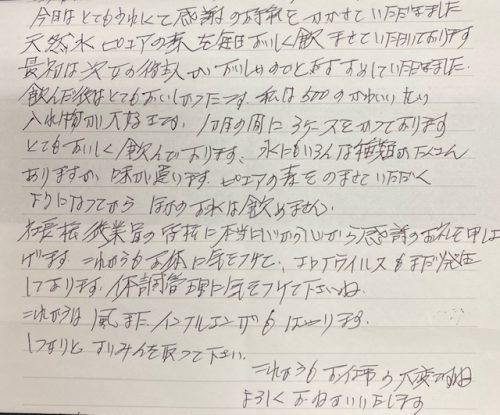 今日はとてもうれしくて感謝のお手紙をかかせていただきました
天然水ピュアの森を毎日おいしく飲ませていただいております
最初は次女の後、がおいしいのでとおすすめしていただきました.
飲んだ後はとてもおいしかったです. 私は500のかわいい
入れ物が大好きです. 1ヶ月の間に3ケースをかっております
とてもおいしく飲んでおります. 水にもいろんな種類がたくさん
ありますが味が違います. ピュアの森をのませていただく
ようになってから ほかのお水は飲めません.
社長様 従業員の皆様に本当に心から感謝のお礼を申し上
げます. これからもお体に気をつけて、コロナウイルスもまだ発生
しております. 体調管理に気をつけて下さいね.
これからは 風また インフルエンザもはやります.
しっかりと すいみんを取って下さい.
これからもお仕事が大変ですね
よろしくおねがいいたします